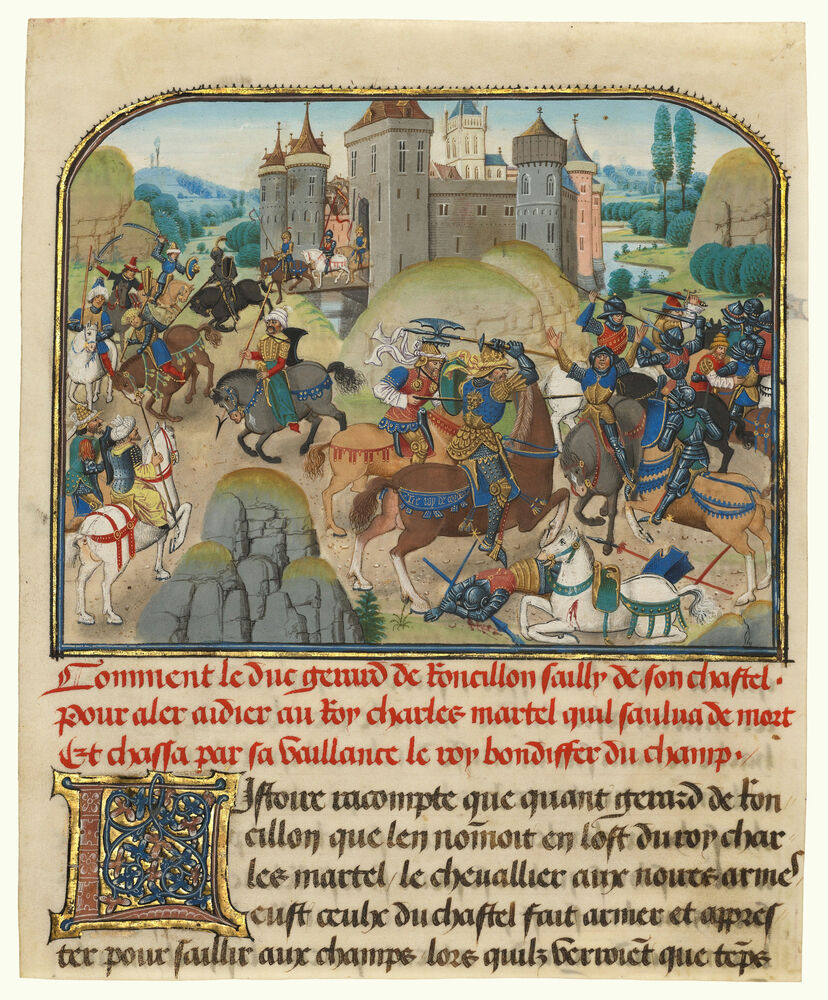 Le roy de
Comment le duc gerard de Roncillon sailly de son chastel.
Pour aler aidier au Roy charles martel quil saulua de mort
Et chassa par sa vaillance le roy bondiffer du champ.
Listoire racompte que quant gerard de Ron
cillon que len nom̄oit en lost du roy char
les martel / le cheuallier aux noires armes
eust ceulx du chastel fait armer et appres
ter pour saillir aux champs lors quilz verroiēt que tēps